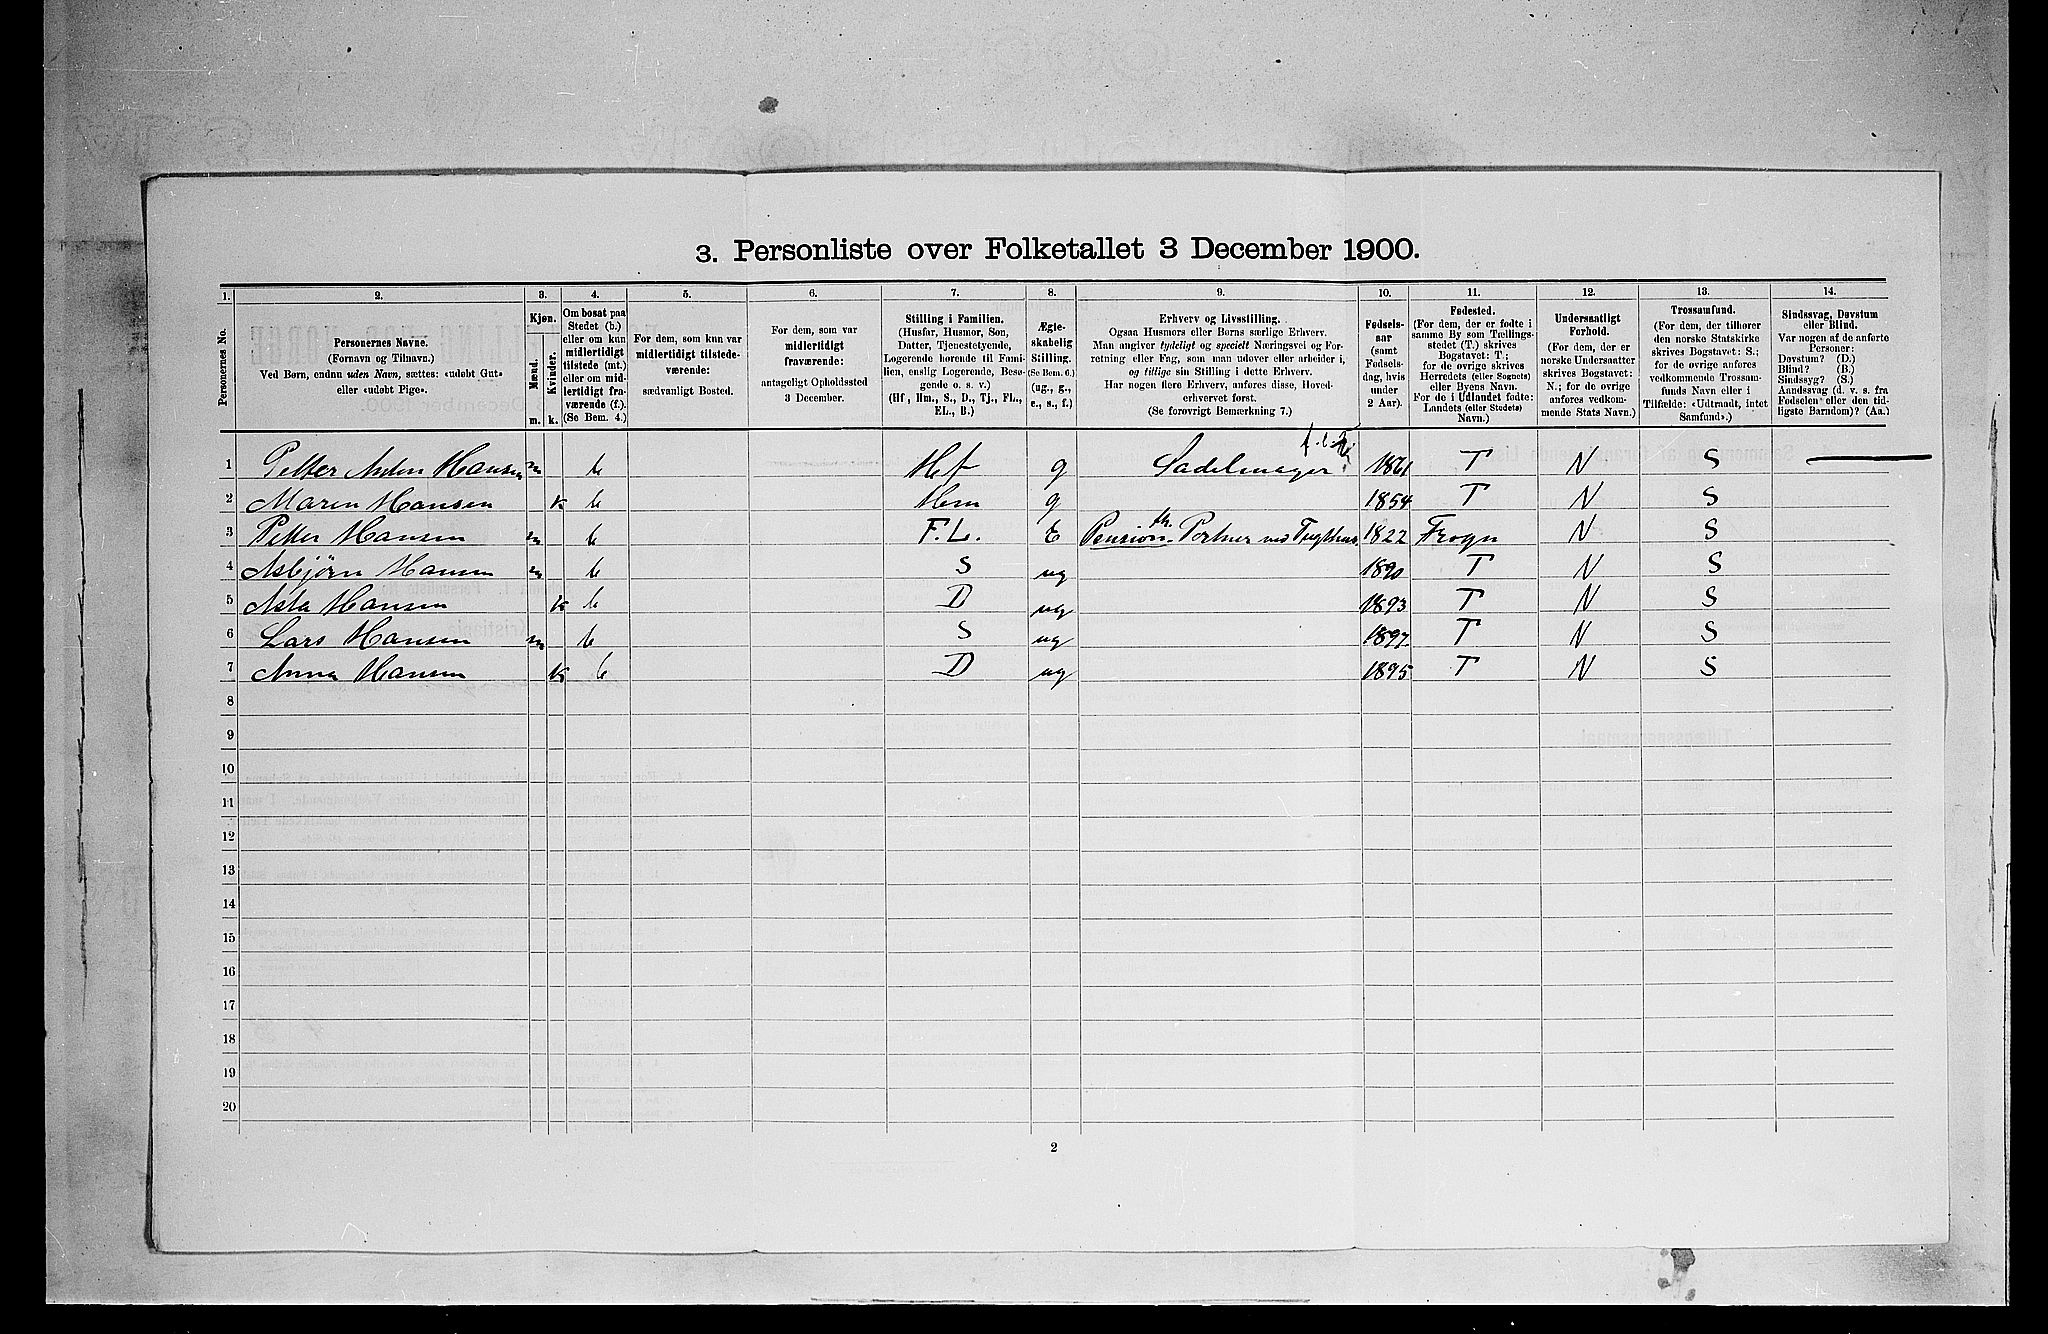 3. Personliste over Folketallet 3 December 1900.
1. 2. 3. 4. 5. 6. 7. 8. 9. 10. 11. 12. 13. 14.
Personernes No.
Personernes Navne.
(Fornavn og Tilnavn.)
Ved Børn, endnu uden Navn, sættes: «udøbt Gut»
eller «udøbt Pige».
Kjøn.
Mænd. Kvinder.
m. k.
Om bosat paa
Stedet (b.)
eller om kun
midlertidigt
tilstede (mt.)
eller om mid-
lertidigt fra-
værende (f.).
(Se Bem. 4.)
For dem, som kun var
midlertidigt tilstede-
værende:
sædvanligt Bosted.
For dem, som var
midlertidigt
fraværende:
antageligt Opholdssted
3 December.
Stilling i Familien.
(Husfar, Husmor, Søn,
Datter, Tjenestetyende,
Logerende hørende til Fami-
lien, enslig Logerende, Besø-
gende o. s. v.)
(Hf, Hm., S., D., Tj., FL.,
EL., B.)
Ægte-
skabelig
Stilling.
(Se Bem. 6.)
(ug., g.,
e., s., f.)
Erhverv og Livsstilling.
Ogsaa Husmors eller Børns særlige Erhverv.
Man angiver tydeligt og specielt Næringsvei og For-
retning eller Fag, som man udøver eller arbeider i,
og tillige sin Stilling i dette Erhverv.
Har nogen flere Erhverv, anføres disse, Hoved-
erhvervet først.
(Se forøvrigt Bemærkning 7.)
Fødsels-
aar
(samt
Fødsels-
dag, hvis
under
2 Aar).
Fødested.
(For dem, der er fødte i
samme By som Tællings-
stedet (T.) skrives
Bogstavet: T;
for de øvrige skrives
Herredets (eller Sognets)
eller Byens Navn.
For de i Udlandet fødte:
Landets (eller Stedets)
Navn.)
Undersaatligt
Forhold.
(For dem, der er
norske Undersaatter
skrives Bogstavet:
N.; for de øvrige
anføres vedkom-
mende Stats Navn.)
Trossamfund.
(For dem, der tilhører
den norske Statskirke
skrives Bogstavet: S.;
for de øvrige anføres
vedkommende Trossam-
funds Navn eller i
Tilfælde: «Udtraadt, intet
Samfund».)
Sindssvag, Døvstum
eller Blind.
Var nogen af de anførte
Personer:
Døvstum? (D.)
Blind? (B.)
Sindssyg? (S.)
Aandssvag (d. v. s. fra
Fødselen eller den tid-
ligste Barndom)? (Aa.)
1 Petter Anton Hansen m b Hf g Sadelmager 1861 T N S
2 Maren Hansen k b Hm g 1854 T N S
3 Petter Hansen m b F.L. E Pension. Portner ved Tugthus. 1822 Frogn N S
4 Asbjørn Hansen m b S ug 1890 T N S
5 Asta Hansen k b D ug 1893 T N S
6 Lars Hansen m b S ug 1897 T N S
7 Anna Hansen k b D ug 1895 T N S
8
9
10
11
12
13
14
15
16
17
18
19
20
2